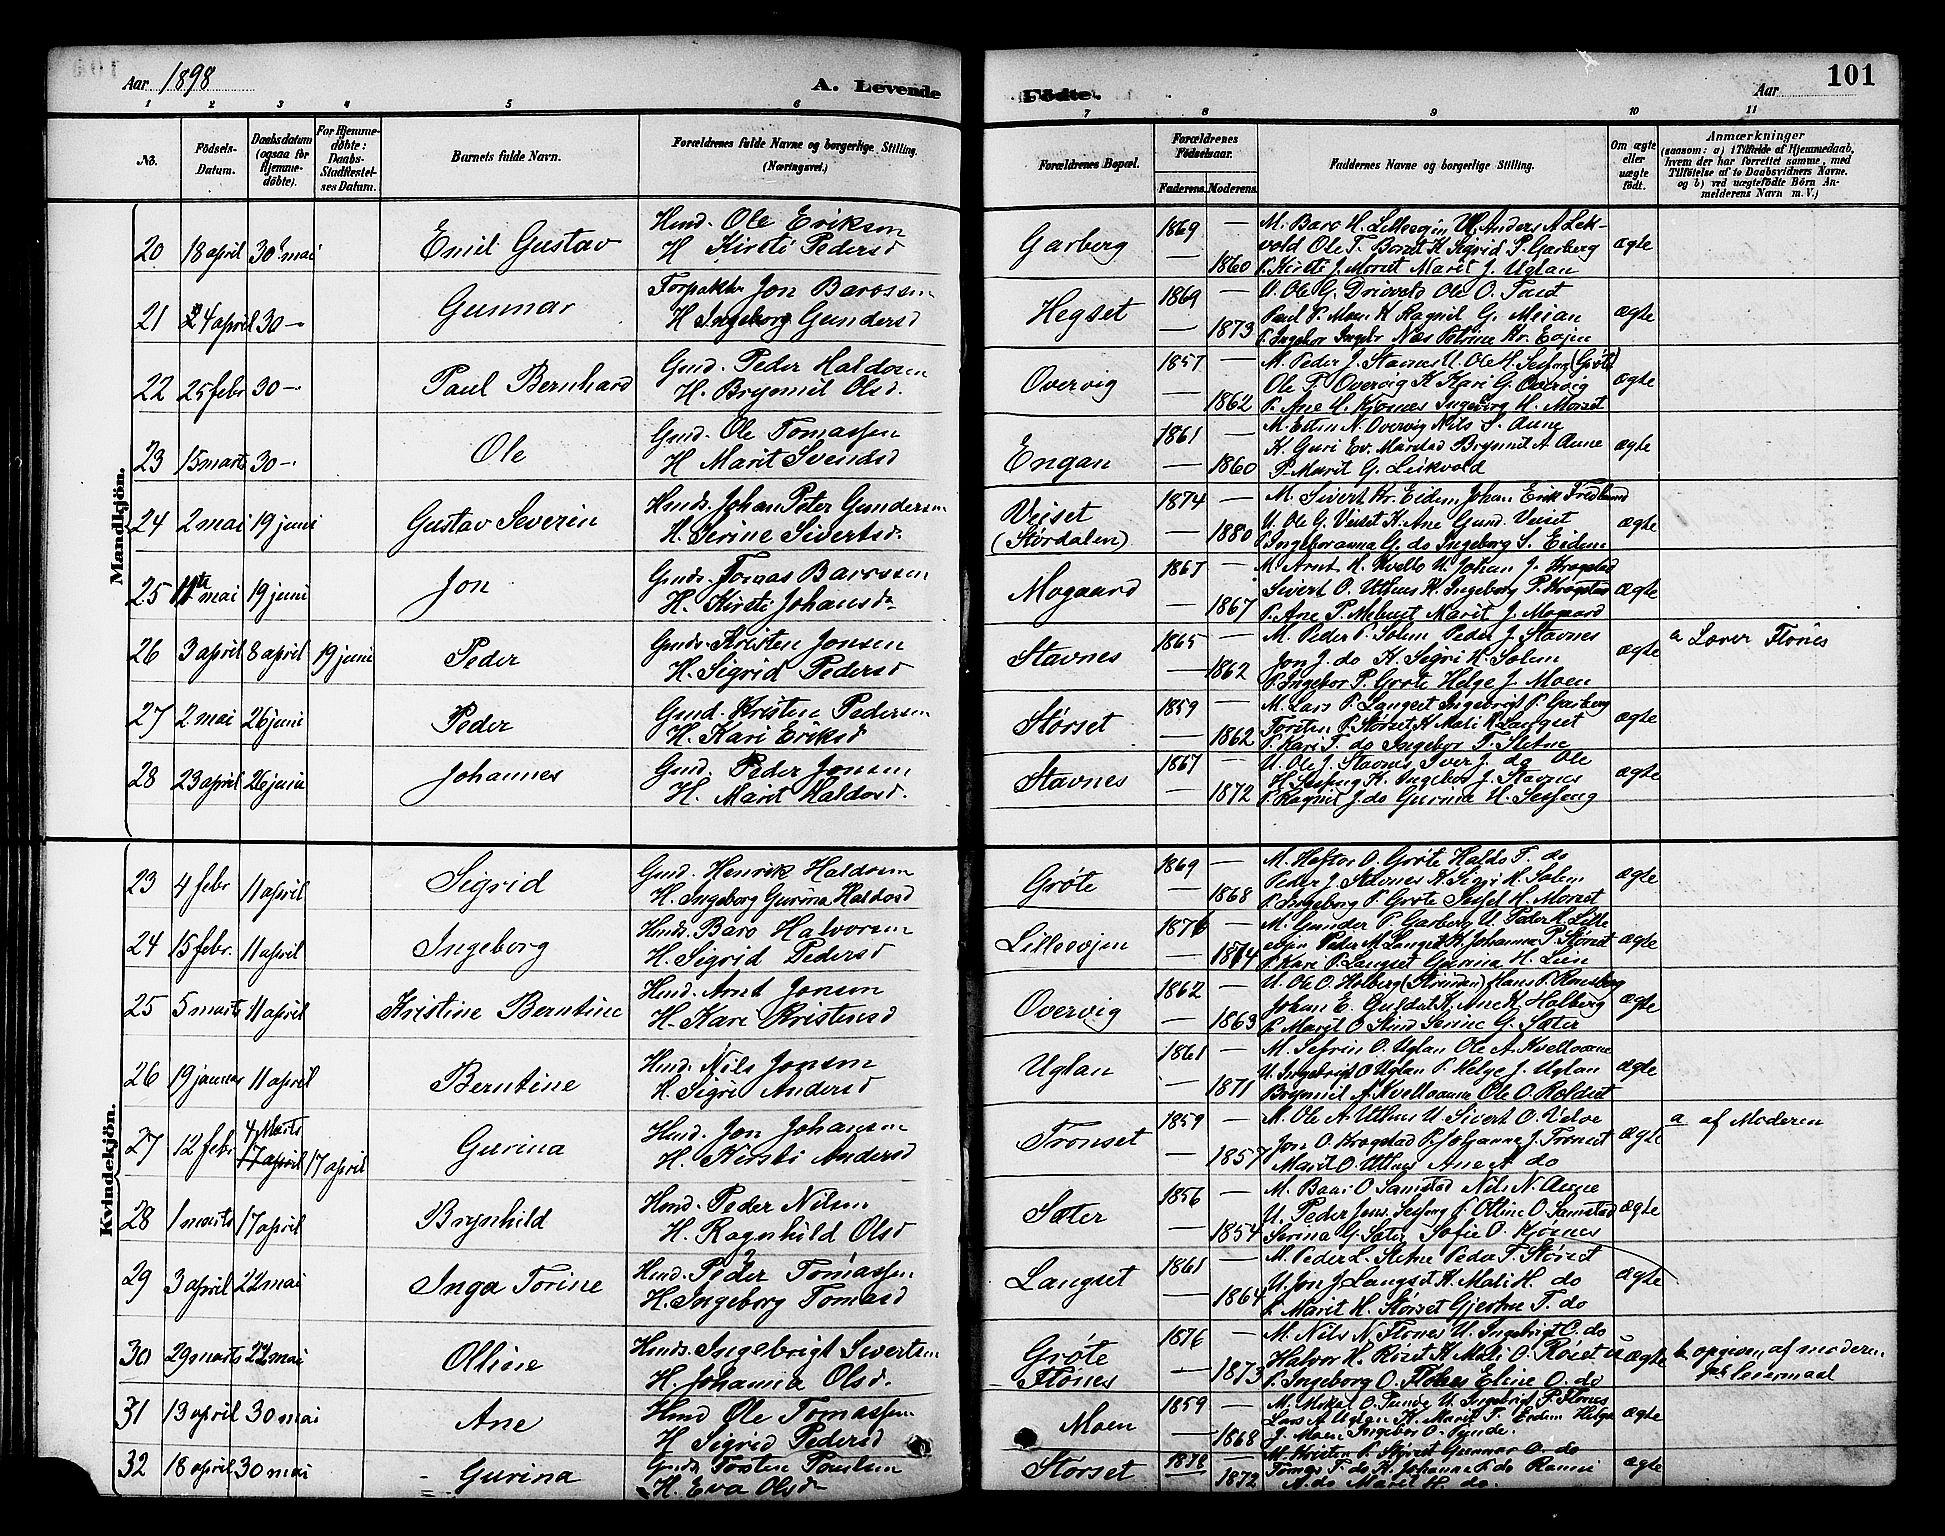 Aar 1898
A. Levende
Fødte.
Aar
101
1 2 3 4 5 6 7 8 9 10 11
No.
Fødsels-Datum.
Daabsdatum (ogsaa for Hjemmedøbte).
For Hjemmedøbte: Daabs-Stadfæstelses Datum.
Barnets fulde Navn.
Forældrenes fulde Navne og borgerlige Stilling. (Næringsvei.)
Forældrenes Bopæl.
Forældrenes Fødselsaar.
Faderens. Moderens.
Faddernes Navne og borgerlige Stilling.
Om ægte eller uægte født.
Anmærkninger
(saasom: a) i Tilfælde af Hjemmedaab, hvem der har forrettet samme, med Tilføielse af to Daabsvidners Navne. og b) ved uægtefødte Børn Anmelderens Navn m. V.)
Mandkjøn.
20 18 april 30 mai Emil Gustav Hmd. Ole Eriksen
H. Kirsti Pedersd
Garberg 1869 — 1860
P. Kirsti J. Morset Marit J. Uglan
ægte
21 24 april 30 — Gunnar Forpakter Jon Barossen
H. Ingeborg Gundersd
Hegset 1869 — 1873
Paul P. Moen K. Ragnil G. Meian
ægte
22 25 febr 30 — Paul Bernhard Gmd. Peder Haldosen
H. Brynnil Olsd.
Overvig 1857 — 1862
M. Peder J. Stavnes U. Ole H. Sesseng (Grøte)
Ole P. Overvig K. Kari G. Overvig
P. Ane H. Kjøsnes Ingeborg H. Morset
ægte
23 15 marts 30 — Ole Gmd. Ole Tomassen
H. Marit Svendsd
Engan 1861 — 1860
M. Esten N. Overvig Nils S. Aune
K. Guri Ev. Marstad Brynnil A. Aune
P. Marit G. Leikvold
ægte
24 2 mai 19 juni Gustav Severin Hmds. Johan Peter Gundersen
H. Serine Sivertsd.
Veiset
(Størdalen)
1874 — 1880
M. Sivert Kr. Eidem Johan Erik Fredlund
U. Ole G. Veiset K. Ane Gund. Veiset
P. Ingeboranna G. do Ingeborg S. Eidem
ægte
25 11te mai 19 juni Jon Gmds. Tomas Barossen
H. Kirsti Johansdr
Mogaard 1867 — 1867
M. Arnt H. Kvello U. Johan J. Krogstad
Sivert O. Uthus K. Ingeborg P. Krogstad
P. Ane P. Melhust Marit J. Mogaard
ægte
26 3 april 8 april 19 juni Peder Gmds. Kristen Jonsen
H. Sigrid Pedersd
Stavnes 1865 — 1862
M. Peder P. Solem Peder J. Stavnes
Jon J. do K. Sigri H. Solem
P. Ingebor P. Grøte Helge J. Moen
ægte a Lærer Flønes
27 2 mai 26 juni Peder Gmd. Kristen Pedersen
H. Kari Eriksd
Størset 1859 — 1862
M. Lars P. Langset Ingebrigt P. Garberg
Torsten P. Størset K. Mali K. Langset
P. Kari T. do Ingebor T. Sletne
ægte
28 23 april 26 juni Johannes Gmd. Peder Jonsen
H. Marit Haldosd.
Stavnes 1867 — 1872
U. Ole J. Stavnes Iver J. do Ole
H. Sesseng K. Ingebor J. Stavnes
P. Ragnil J. do Gurina H. Sesseng
ægte
Kvindekjön.
23 4 febr 11 april Sigrid Gmd. Henrik Haldosen
H. Ingeborg Gurina Haldosd
Grøte 1869 — 1868
M. Haftor O. Grøte Haldo T. do
Peder J. Stavnes K. Sigri H. Solem
P. Ingeborg P. Grøte Sessel H. Morset
ægte
24 15 febr. 11 april Ingeborg Hmds. Baro Halvorsen
H. Sigrid Pedersd
Lilleevjen 1876 — 1874
M. Gunder P. Garberg U. Peder H. Lille
evjen Peder M. Langset K. Johanna P. Størset
P. Kari P. Langset Gurina H. Lien
ægte
25 5 marts 11 april Kristine Berntine Hmd. Arnt Jonsen
H. Kari Kristensd
Overvig 1862 — 1863
U. Ole O. Holberg (Strinden) Hans P. Rønsberg
Johan E. Gulset K. Ane K. Halberg
P. Marit O. Stind Serine G. Sæter
ægte
26 19 januar 11 april Berntine Hmd. Nils Jonsen
H. Sigri Andersd
Uglan 1861 — 1871
M. Sefrin O. Uglan Ole A. Kvelloaune
U. Ingebrigt O Uglan P. Helge J. Uglan
Brynnil A. Kvelloaune Ole O. Roldset
ægte
27 12 febr 4 Marts 17 april 17 april Gurina Hmd. Jon Johansen
H. Kirsti Andersd
Trønset 1859 — 1857
M. Ole A. Uthus U. Sivert O. Udve
Jon O. Krogstad P. Johanna J. Trønset
Marit O. Uthus Ane A. do
ægte a af Moderen
28 1 marts 17 april Brynhild Hmd. Peder Nilsen
H. Ragnhild Olsd
Sæter 1856 — 1854
M. Baro O Samstad Nils N. Aune
U. Peder Jons. Sesseng P. Olline O. Samstad
Serina G. Sæter Sofie O. Kjøsnes
ægte
29 3 april 22 mai Inga Torine Hmd. Peder Tomassen
H. Ingeborg Tomasd
Langset 1861 — 1864
M. Peder L. Sletne Peder T. Størset
U. Jon J. Langset K. Mali H. do
P. Marit H. Størset Gjertru T. do
ægte
30 29 marts 22 mai Olline Hmds. Ingebrigt Sivertsen
H. Johanna Olsd.
Grøte
Flønes
1876 — 1873
M. Nils N. Flønes U. Ingebrigt O. do
Halvor H. Røset K. Mali O. Røset
P. Ingeborg O. Flønes Eline O. do
uægte b opgiven af moderen
leiermaal
31 13 april 30 mai Ane Hmd Ole Tomassen
H. Sigrid Pedersd
Moen 1859 — 1868
M. Mikal O. Sunde U. Ingebrigt P. Flønes
Lars A. Uglan K. Marit T. Eidem Helga
J. Moen Ingebor O. Sunde.
ægte
32 18 april 30 mai Gurina Gmds Torsten Poulsen
H. Eva Olsdr
Størset 1872
M. Kristen P. Størset Gunnar O. do
Tomas T. do K. Johanna P. do
A. do Marit H. do.
ægte